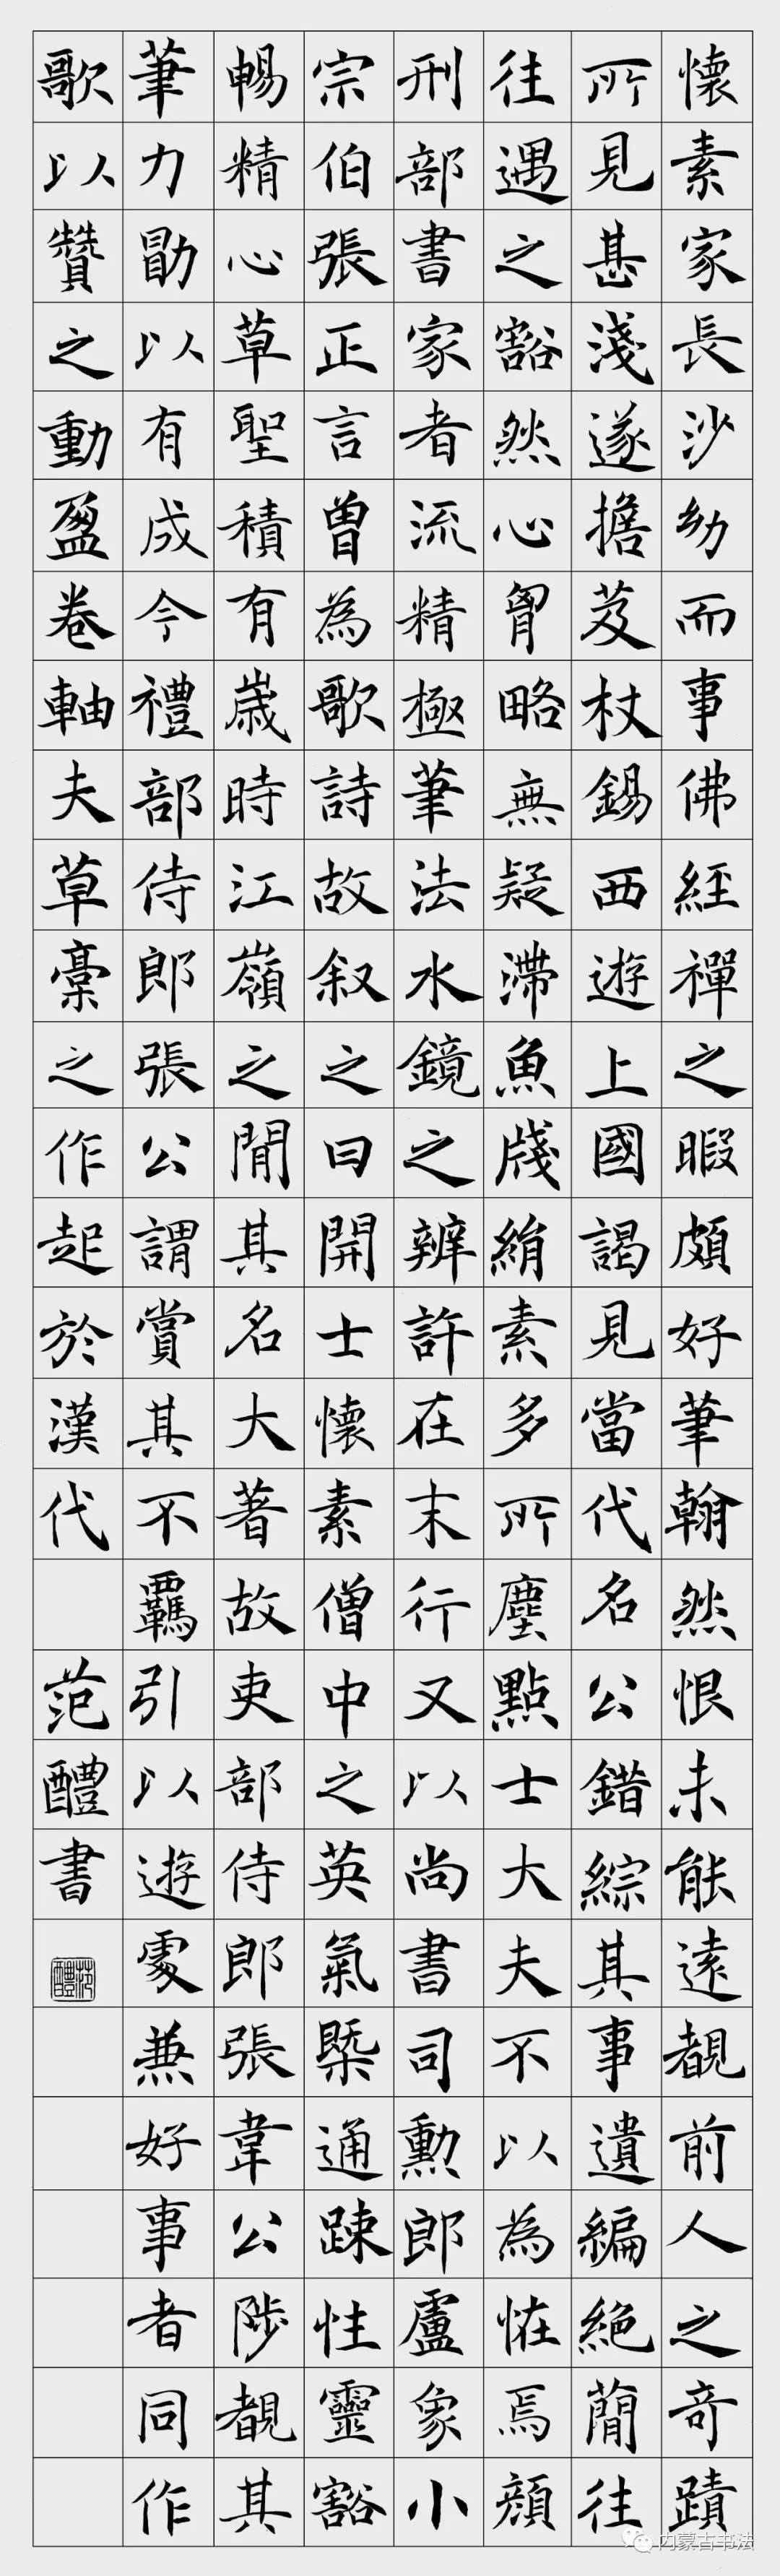 懷素家長沙幼而事佛經禪之暇頗好筆翰然恨未能遠覩前人之奇蹟
所見甚淺遂擔笈杖錫西遊上國謁見當代名公錯綜其事遺編絕蕳往
往遇之豁然心胷略無疑滯魚牋絹素多所塵點士大夫不以為恠焉顏
刑部書家者流精極筆法水鏡之辨許在末行又以尚書司勳郎盧象小
宗伯張正言曾為歌詩故叙之曰開士懷素僧中之英氣槩通踈性靈豁
暢精心草聖積有歲時江嶺之間其名大著故吏部侍郎張韋公陟覩其
筆力勖以有成今禮部侍郎張公謂賞其不羈引以遊處兼好事者同作
歌以贊之動盈卷軸夫草稾之作起於漢代
范醴書
范醴
内蒙古书法